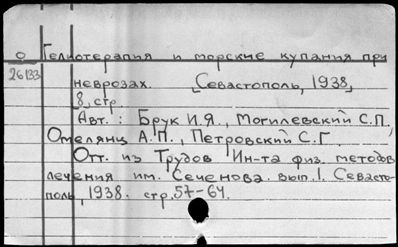 О Гелиотерапия и морские купания при
26133 неврозах. Севастополь, 1938,
8 стр.
Авт.: Брук И.Я., Могилевский С.П.,
Омелянц А.П., Петровский С.Г.
Отт. из Трудов Ин-та физ. методов
лечения им. Сеченова. вып.1. Севасто-
поль, 1938. стр.57-64.